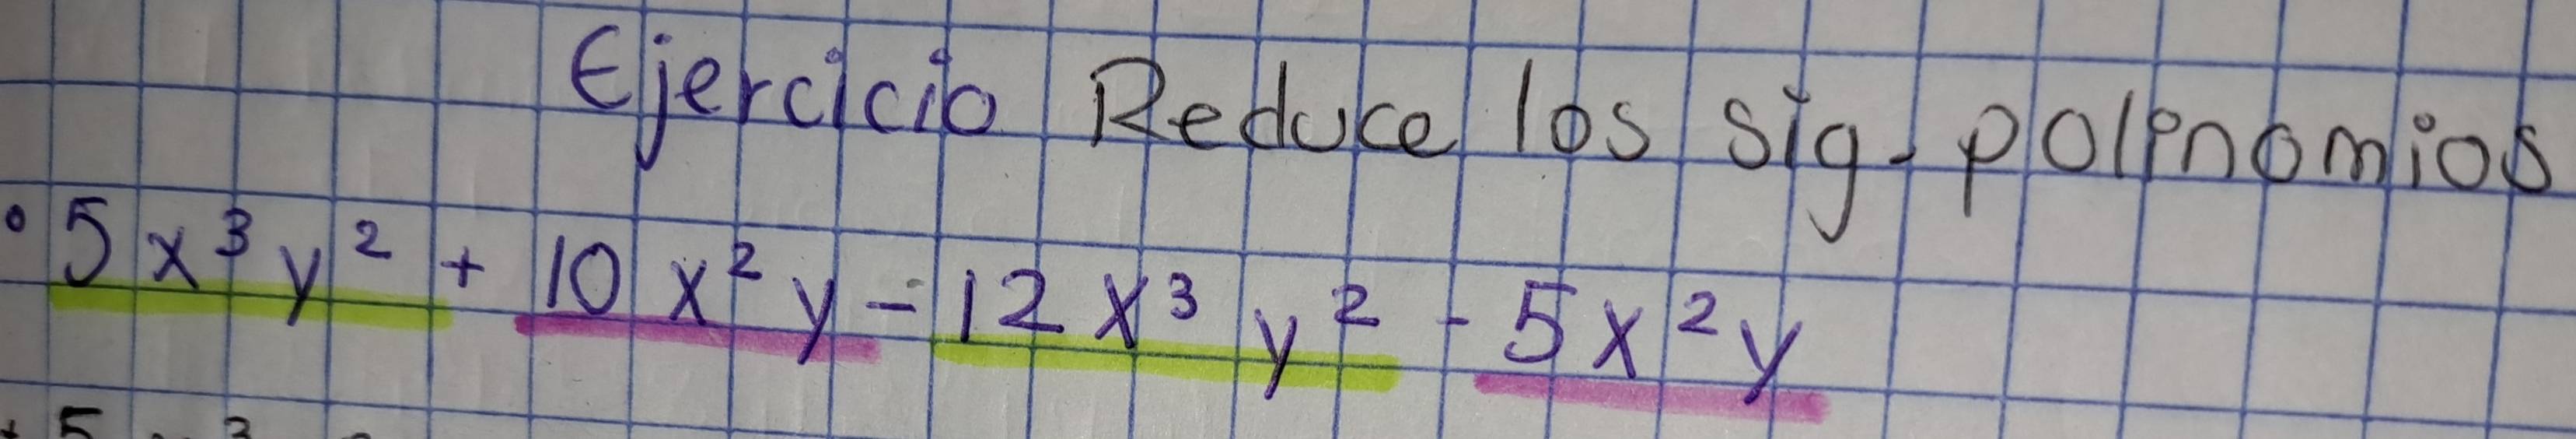 Ejercicio Reduce los sig. polinomios
• 5x³y² + 10x²y - 12x³y² - 5x²y